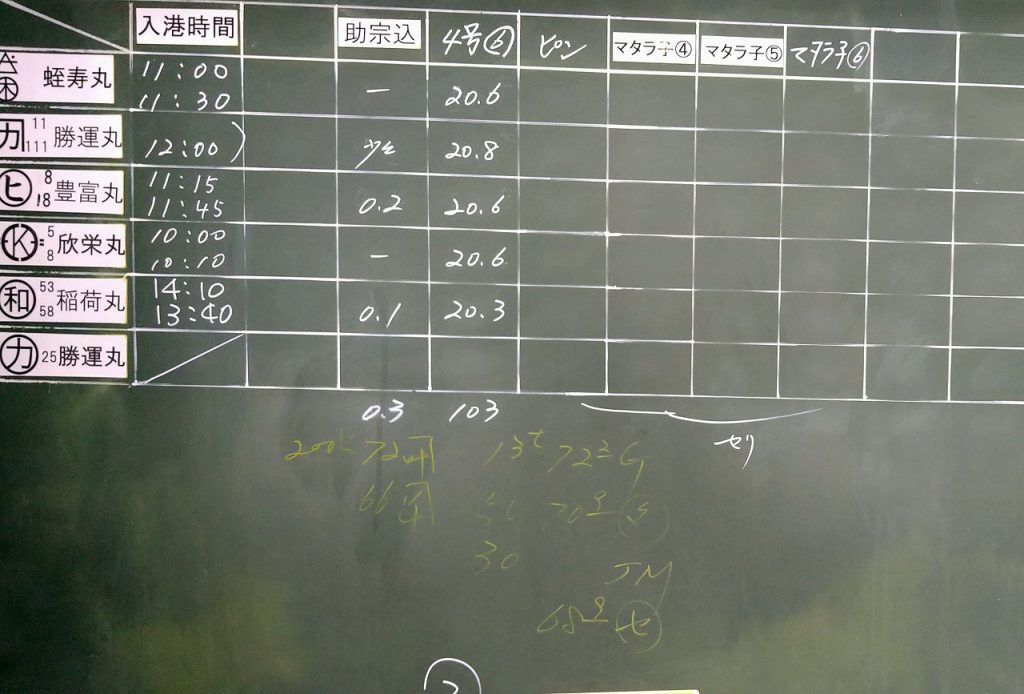 入港時間 助宗込 4号⑥ ピン マタラ子④ マタラ子⑤ マタラ子⑥
蛭寿丸 11:00 11:30 ー 20.6
カ 11 111 勝運丸 12:00 少々 20.8
ヒ 8 18 豊富丸 11:15 11:45 0.2 20.6
K 5 8 欣栄丸 10:00 10:10 ー 20.6
和 53 58 稲荷丸 14:10 13:40 0.1 20.3
カ 25 勝運丸
0.3 103
セリ
72 13t 72
66 70
30
JM
68 セ